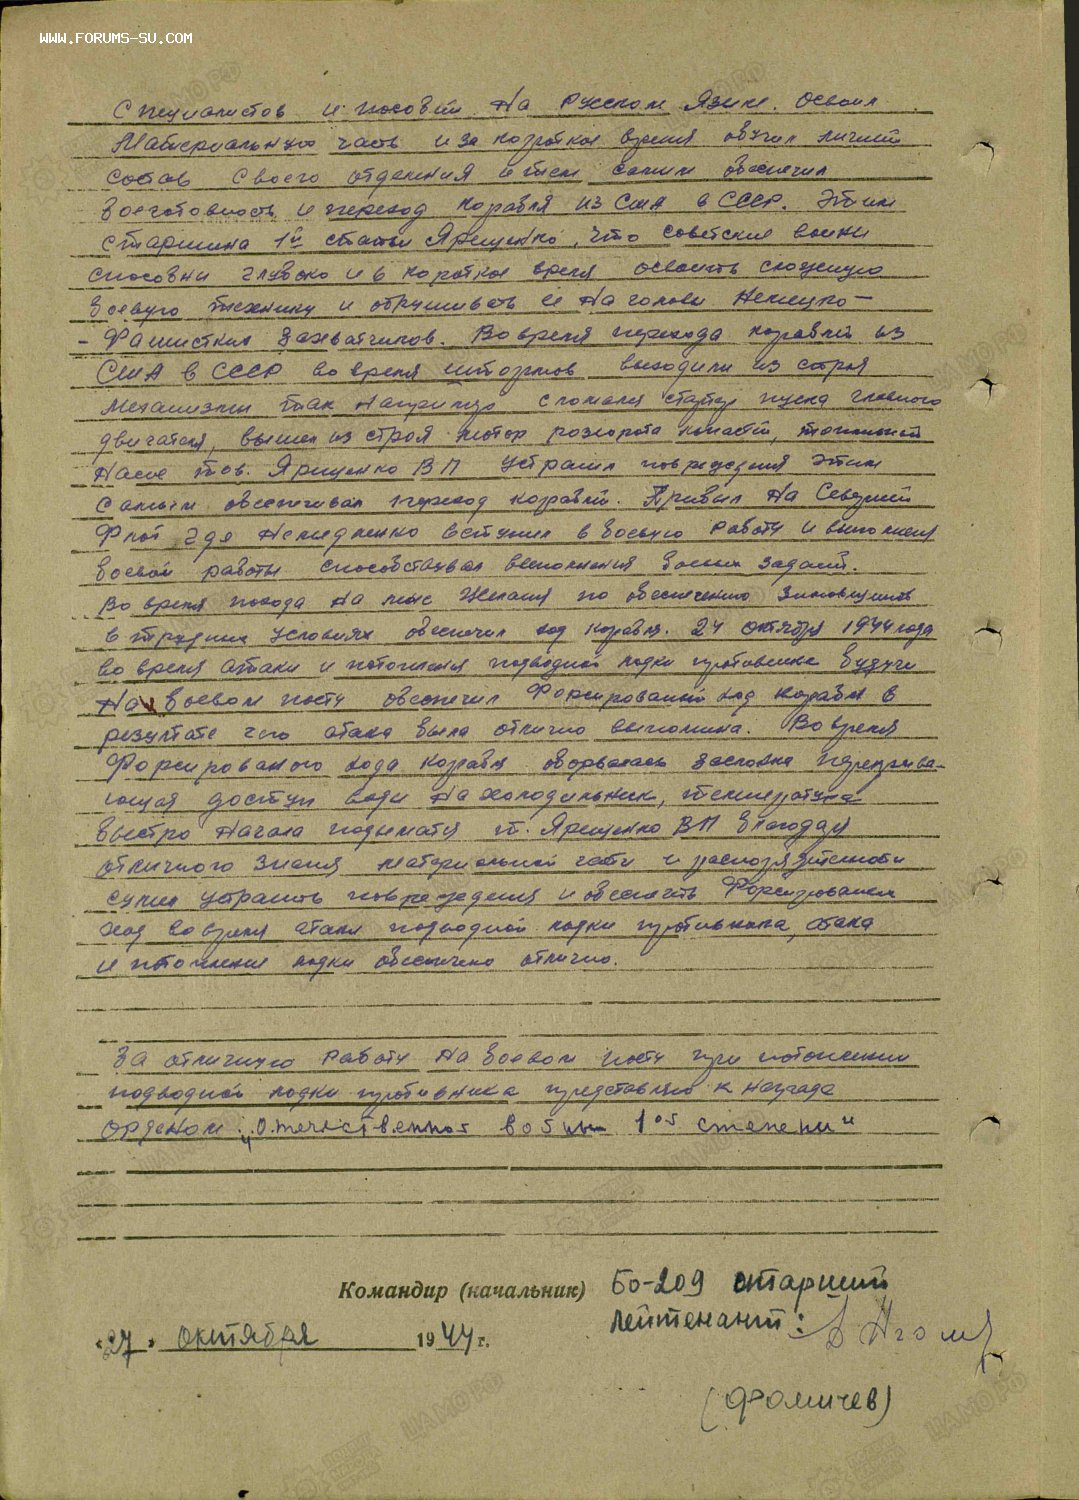 WWW.FORUMS-SU.COM
Специалистов и пособий на Русском языке. Освоил
Материальную часть и за короткое время обучил личный
состав своего отделения и тем самым обеспечил
боеготовность и переход корабля из США в СССР. Этим
старшина 1й статьи Ярещенко, что советские воины
способны глубоко и в короткое время освоить сложную
боевую технику и обрушивать её на головы Немецко-
- Фашистких захватчиков. Во время перехода кораблей из
США в СССР во время штормов выходили из строя
механизмы так например сломался стартер пуска главного
двигателя, вышел из строя мотор разворота лопасти, топливный
насос тов. Ярещенко В П устранил повреждения этим
самым обеспечивал переход кораблей. Прибыл на Северный
Флот где немедленно вступил в боевую работу и
боевой работы способствовал выполнения боевых заданий.
Во время похода на мыс Желания по обеспечению
в трудных условиях обеспечил ход корабля. 24 октября 1944 года
во время атаки и потопления подводной лодки противника будучи
на боевом посту обеспечил Форсированный ход корабля в
результате чего атака была отлично выполнена. Во время
Форсированого хода корабля оборвалась заслонка перекрыва-
ющая доступ воды на холодильник, температура
быстро начала подыматся т. Ярещенко ВП благодаря
отличного знания материальной части и распорядительности
сумел устранить повреждения и обеспечить Форсированный
ход во время атаки подводной лодки противника, атака
и потопление лодки обеспечено отлично.
За отличную работу на боевом посту при потоплении
подводной лодки противника представляю к награде
орденом „Отечественной войны 1ой степени"
Командир (начальник) БО-209 старший
лейтенант:
«27» октября 1944 г.
(Фомичев)